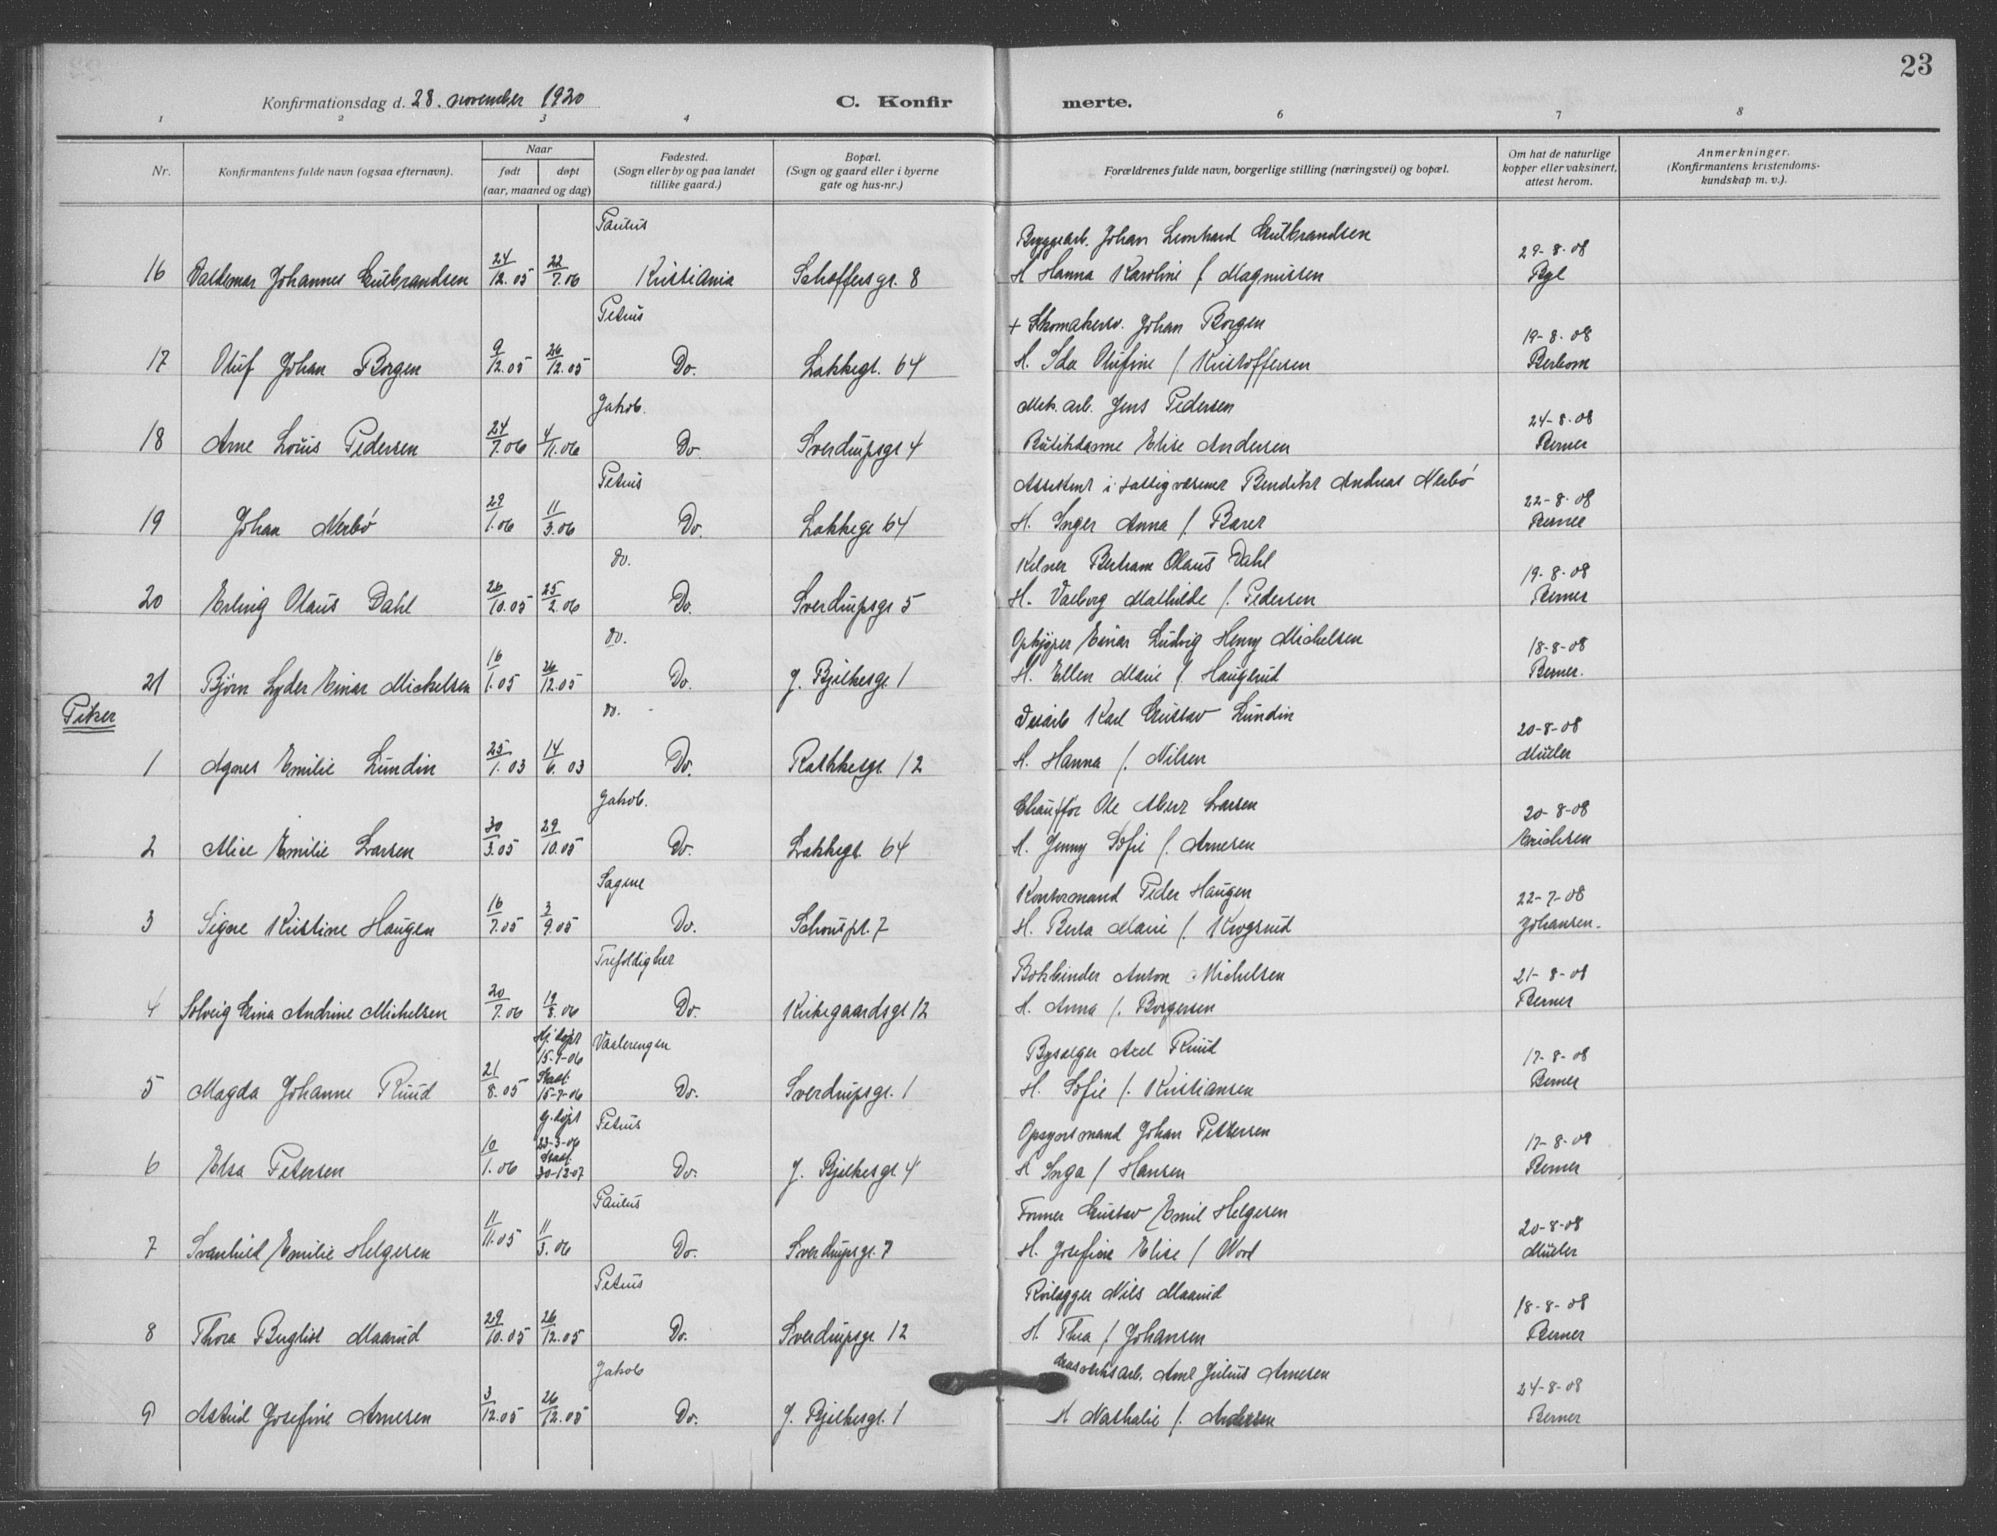 23
Konfirmationsdag d. 28. november 1920
C. Konfir merte.
1 2 3 4 6 7 8
Nr.
Konfirmantens fulde navn (ogsaa efternavn).
Naar
født døpt
(aar, maaned og dag)
Fødested.
(Sogn eller by og paa landet
tillike gaard.)
Bopæl.
(Sogn og gaard eller i byerne
gate og hus-nr.)
Forældrenes fulde navn, borgerlige stilling (næringsvei) og bopæl.
Om hat de naturlige
kopper eller vaksinert,
attest herom.
Anmerkninger.
(Konfirmantens kristendoms-
kundskap m. v.).
Paulus Bryggearb. Johan Leonhard Gulbrandsen 29-8-08
16 Valdemar Johannes Gulbrandsen 24/12.05 22/7.06 Kristiania Schoffersgt. 8 H. Hanna Karoline f. Magnussen
Petrus + Skomakersv. Johan Borgen 19-8-08
17 Oluf Johan Borgen 9/12.05 26/12.05 Do. Lakkegt. 64 H. Ida Olufine f. Kristoffersen
Jakob. Mek. arb. Jens Pedersen 24-8-08
18 Arne Louis Pedersen 24/7.06 4/11.06 Do. Sverdrupsgt 4 Butikdame Elise Andersen Berner
Petrus Assistent i fattigvæsenet Bendikt Andreas Nerbø 22-8-08
19 Johan Nerbø 29/1.06 11/3.06 Do. Lakkegt 64 H. Inger Anna f. Berner
do. Kelner Bertram Olaus Dahl 19-8-08
20 Erling Olaus Dahl 26/10.05 25/2.06 Do. Sverdrupsgt 5 H. Valborg Mathilde f. Pedersen Berner
do. Ophyper Einar Ludvig Henry Michelsen 18-8-08
21 Bjørn Lyder Einar Michelsen 16/1.05 26/12.05 Do. J. Bjelkesgt 1 H. Ellen Marie f. Haugerud Berner.
Piker
do. Karl Gustav Lundin 20-8-08
1 Agnes Emilie Lundin 25/1.03 14/6.03 Do. Rathkesgt. 12 H. Hanna f. Nilsen Müller
Jakob. Chauffør Ole Larsen 20-8-08
2 Alice Emilie Larsen 30/3.05 29/10.05 Do. Lakkegt. 64 H. Jenny Sofie f. Arnesen Erichsen
Sagene Kontormand Peder Haugen 22-7-08
3 Signe Kristine Haugen 16/7.05 3/9.05 Do. Schouspl. 7 H. Berta Marie f. Krogsrud Johansen.
Trefoldighet Bokbinder Anton Michelsen 21-8-08
4 Solveig Gina Andrine Michelsen 20/7.06 19/8.06 Do. Kirkegaardsgt 12 H. Anna f. Borgersen Berner
Hj. døpt
15-9-06
Vaalerengen Bysælger Axel Ruud 17-8-08
5 Magda Johanne Ruud 21/8.05 Do. Sverdrupsgt. 1 H. Sofie f. Kristiansen Berner
Hj. døpt
23-3-06
Stadf.
30-12-07
Petrus Opsynsmand Johan Pettersen 17-8-08
6 Elsa Petersen 10/1.06 Do. J. Bjelkesgt 4 H. Inga f. Hansen Berner
Paulus Former Gustav Emil Helgesen 20-8-08
7 Svanhild Emilie Helgesen 11/11.05 11/3.06 Do. Sverdrupsgt. 7 H. Josefine Elise f. Wold Müller
Petrus Rørlægger Nils Maarud 18-8-08
8 Thora Buglist Maarud 29/10.05 26/12.05 Do. Sverdrupsgt 12 H. Thea f. Johansen Berner
Jakob Gasverksarb. Arne Julius Arnesen 24-8-08
9 Astrid Josefine Arnesen 3/12.05 26/12.05 Do. J. Bjelkesgt. 1 H. Nathalie f. Andersen Berner